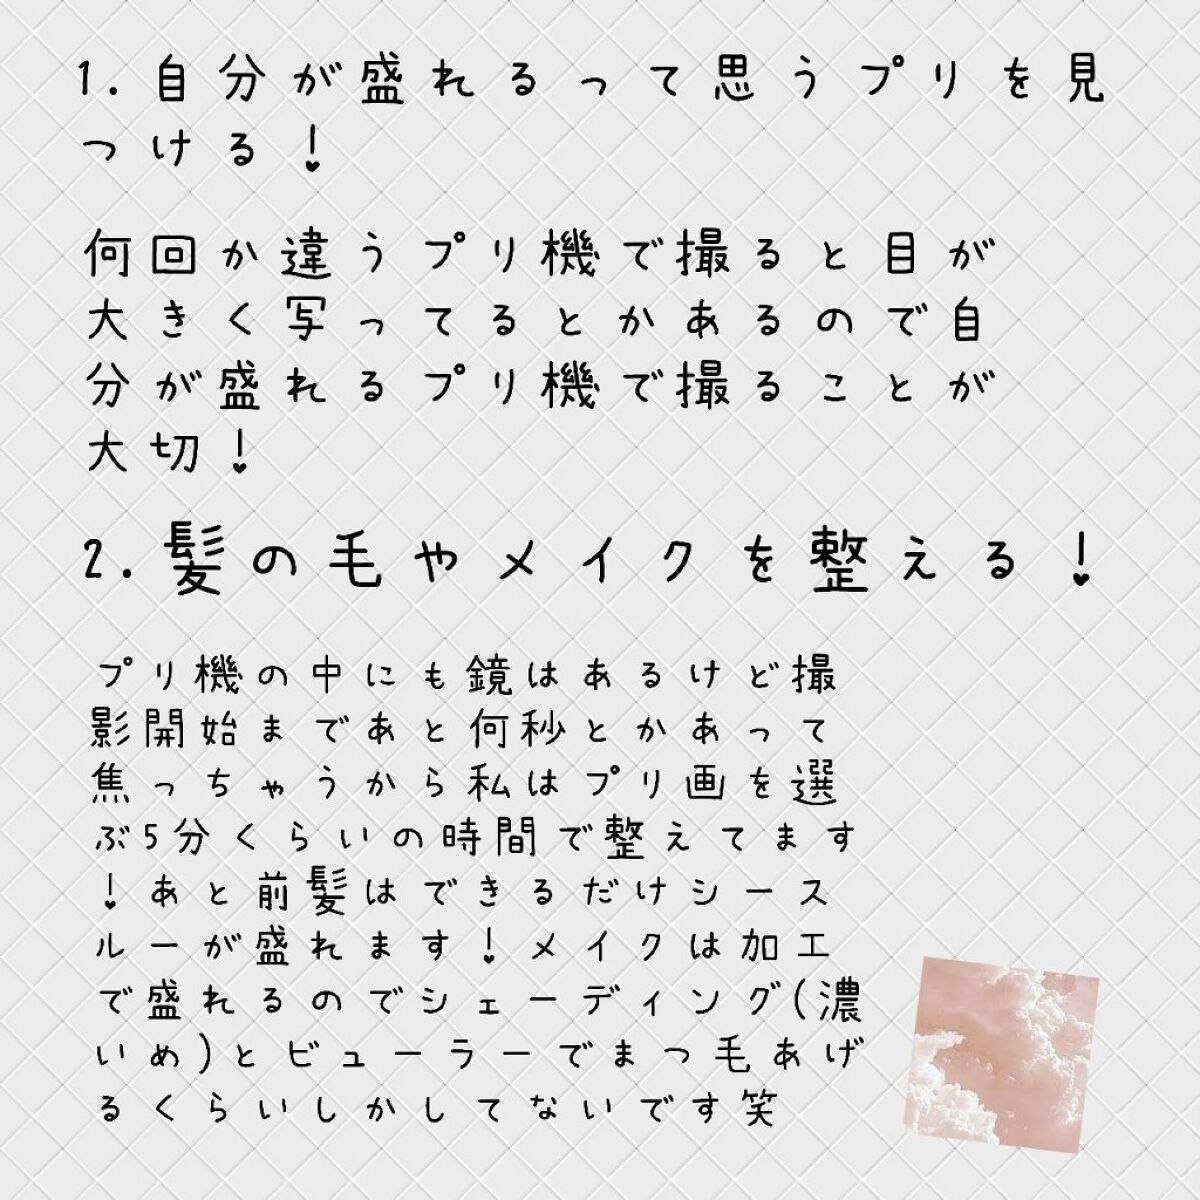 1.自分が盛れるって思うプリを見
つける!
何回か違うプリ機で撮ると目が
大きく写ってるとかあるので自
分が盛れるプリ機で撮ることが
大切!
2.髪の毛やメイクを整える!
プリ機の中にも鏡はあるけど撮
影開始まであと何秒とかあって
焦っちゃうから私はプリ画を選
ぶ5分くらいの時間で整えてます
!あと前髪はできるだけシース
ルーが盛れます!メイクは加工
で盛れるのでシェーディング(濃
いめ)とビューラーでまつ毛あげ
るくらいしかしてないです笑